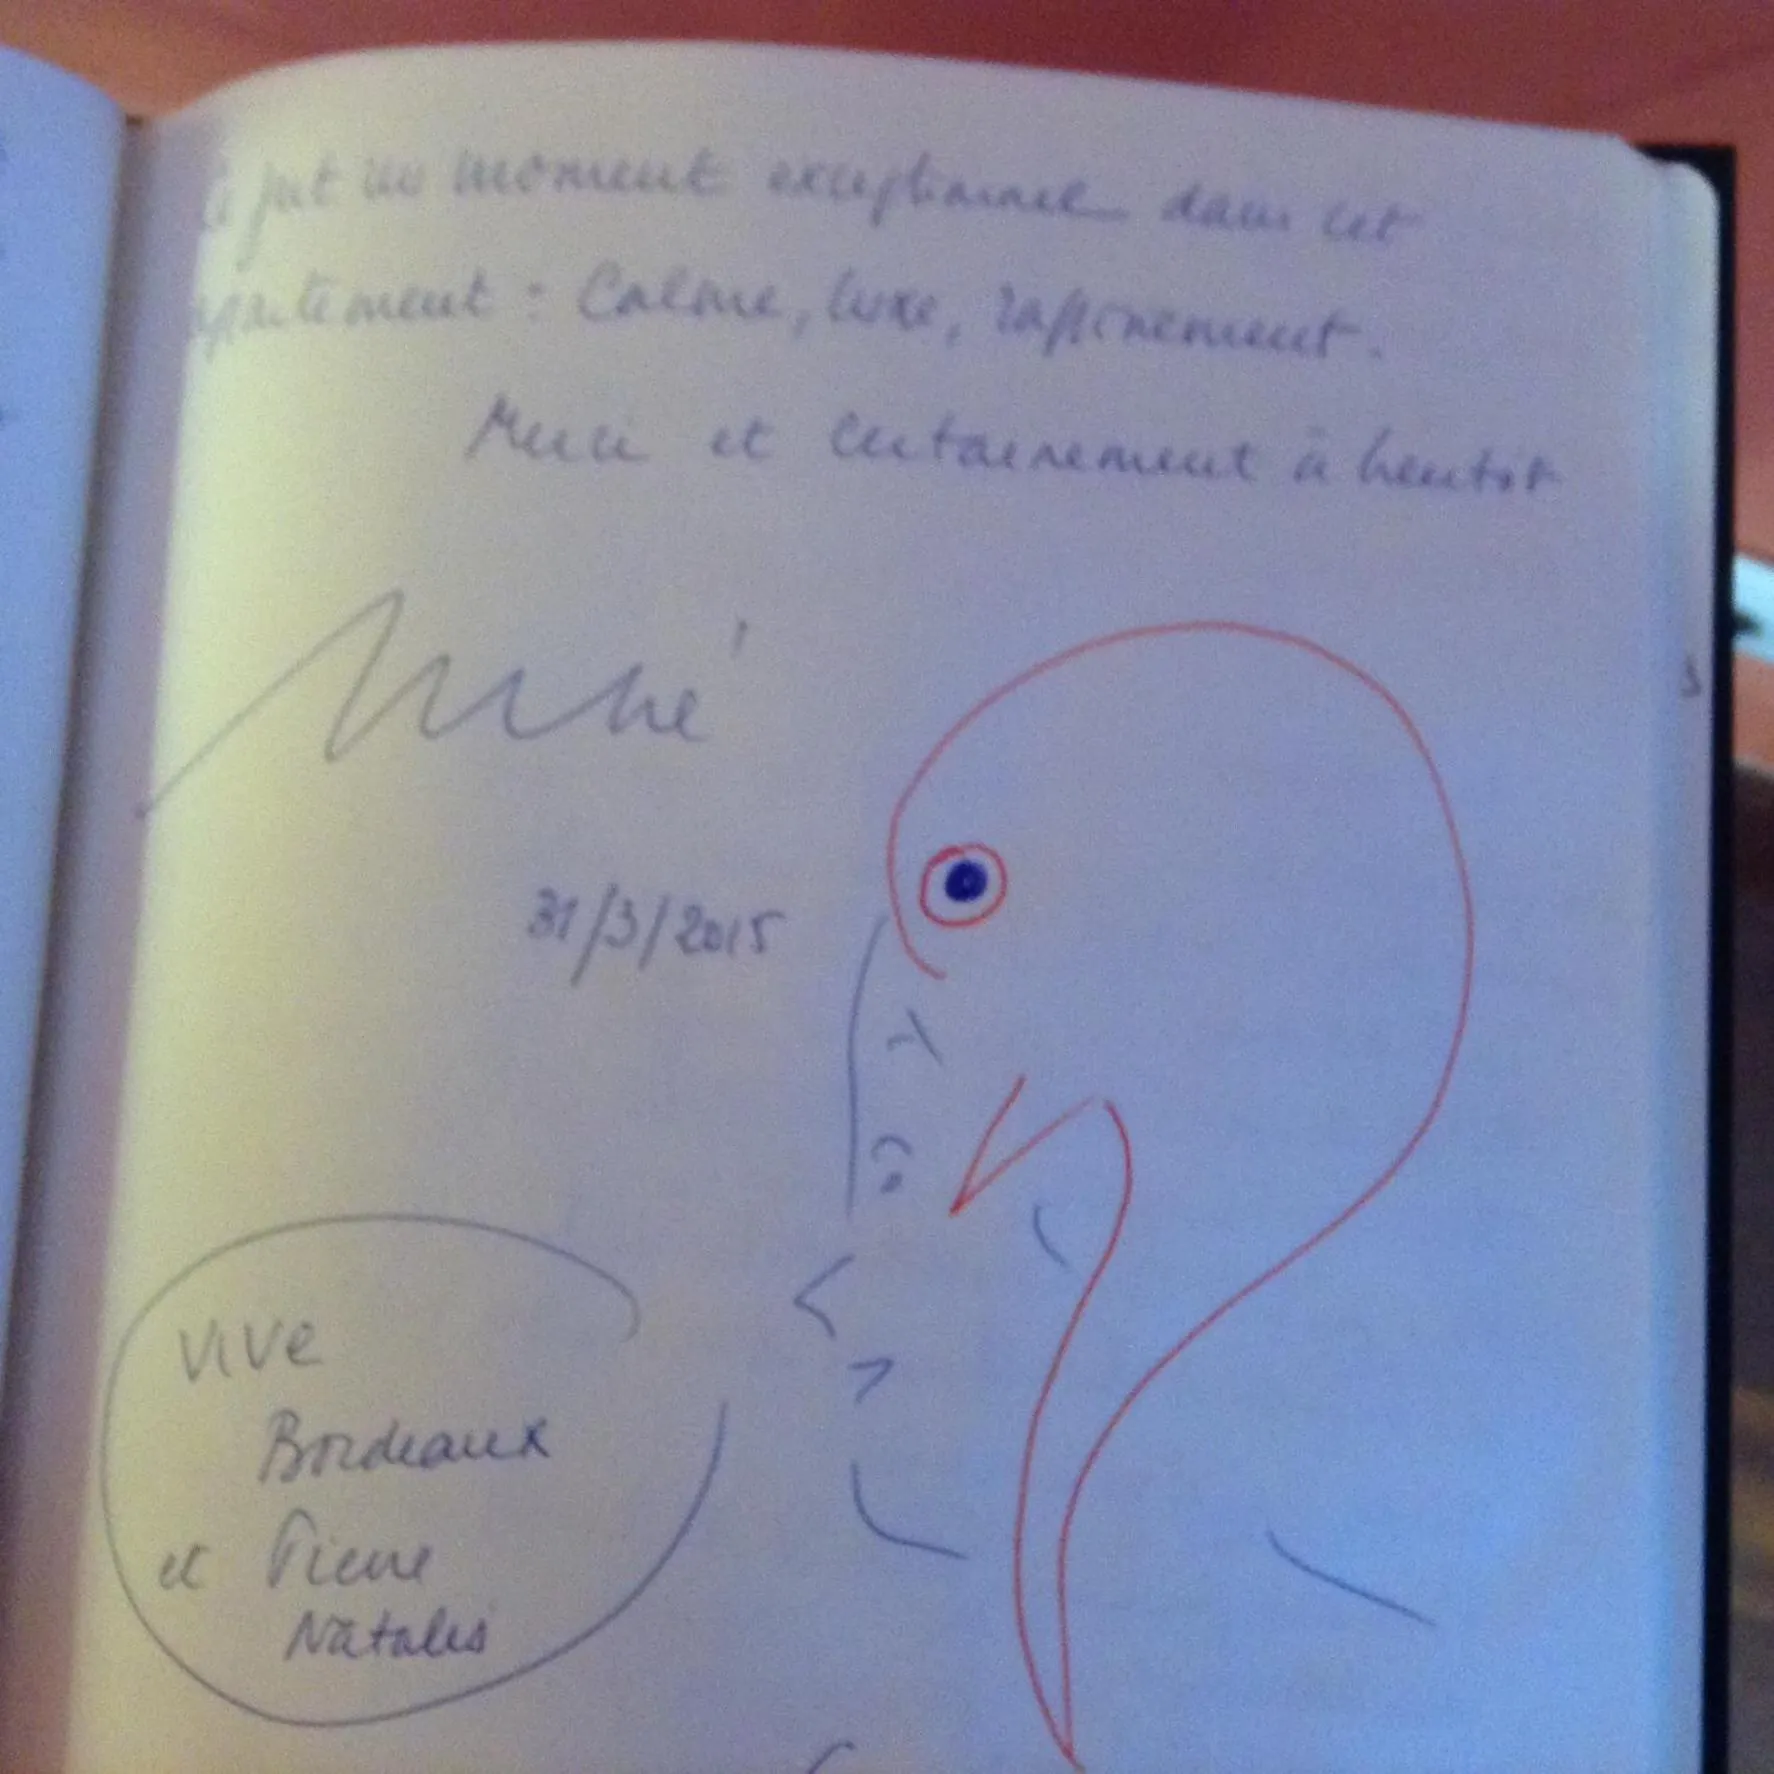 Ce fut un moment exceptionnel dans cet
appartement : Calme, luxe, raffinement.
Merci et certainement à bientôt
31/3/2015
Vive
Bordeaux
et Pierre
Natalis